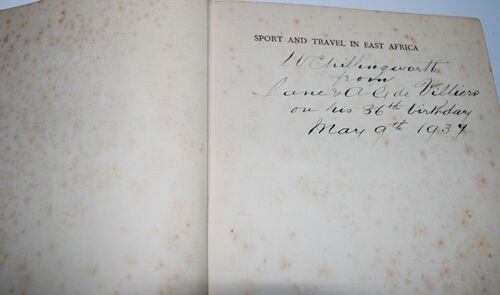 SPORT AND TRAVEL IN EAST AFRICA
W Chillingworth
from
de Villiers
on his 36th birthday
May 9th 1937